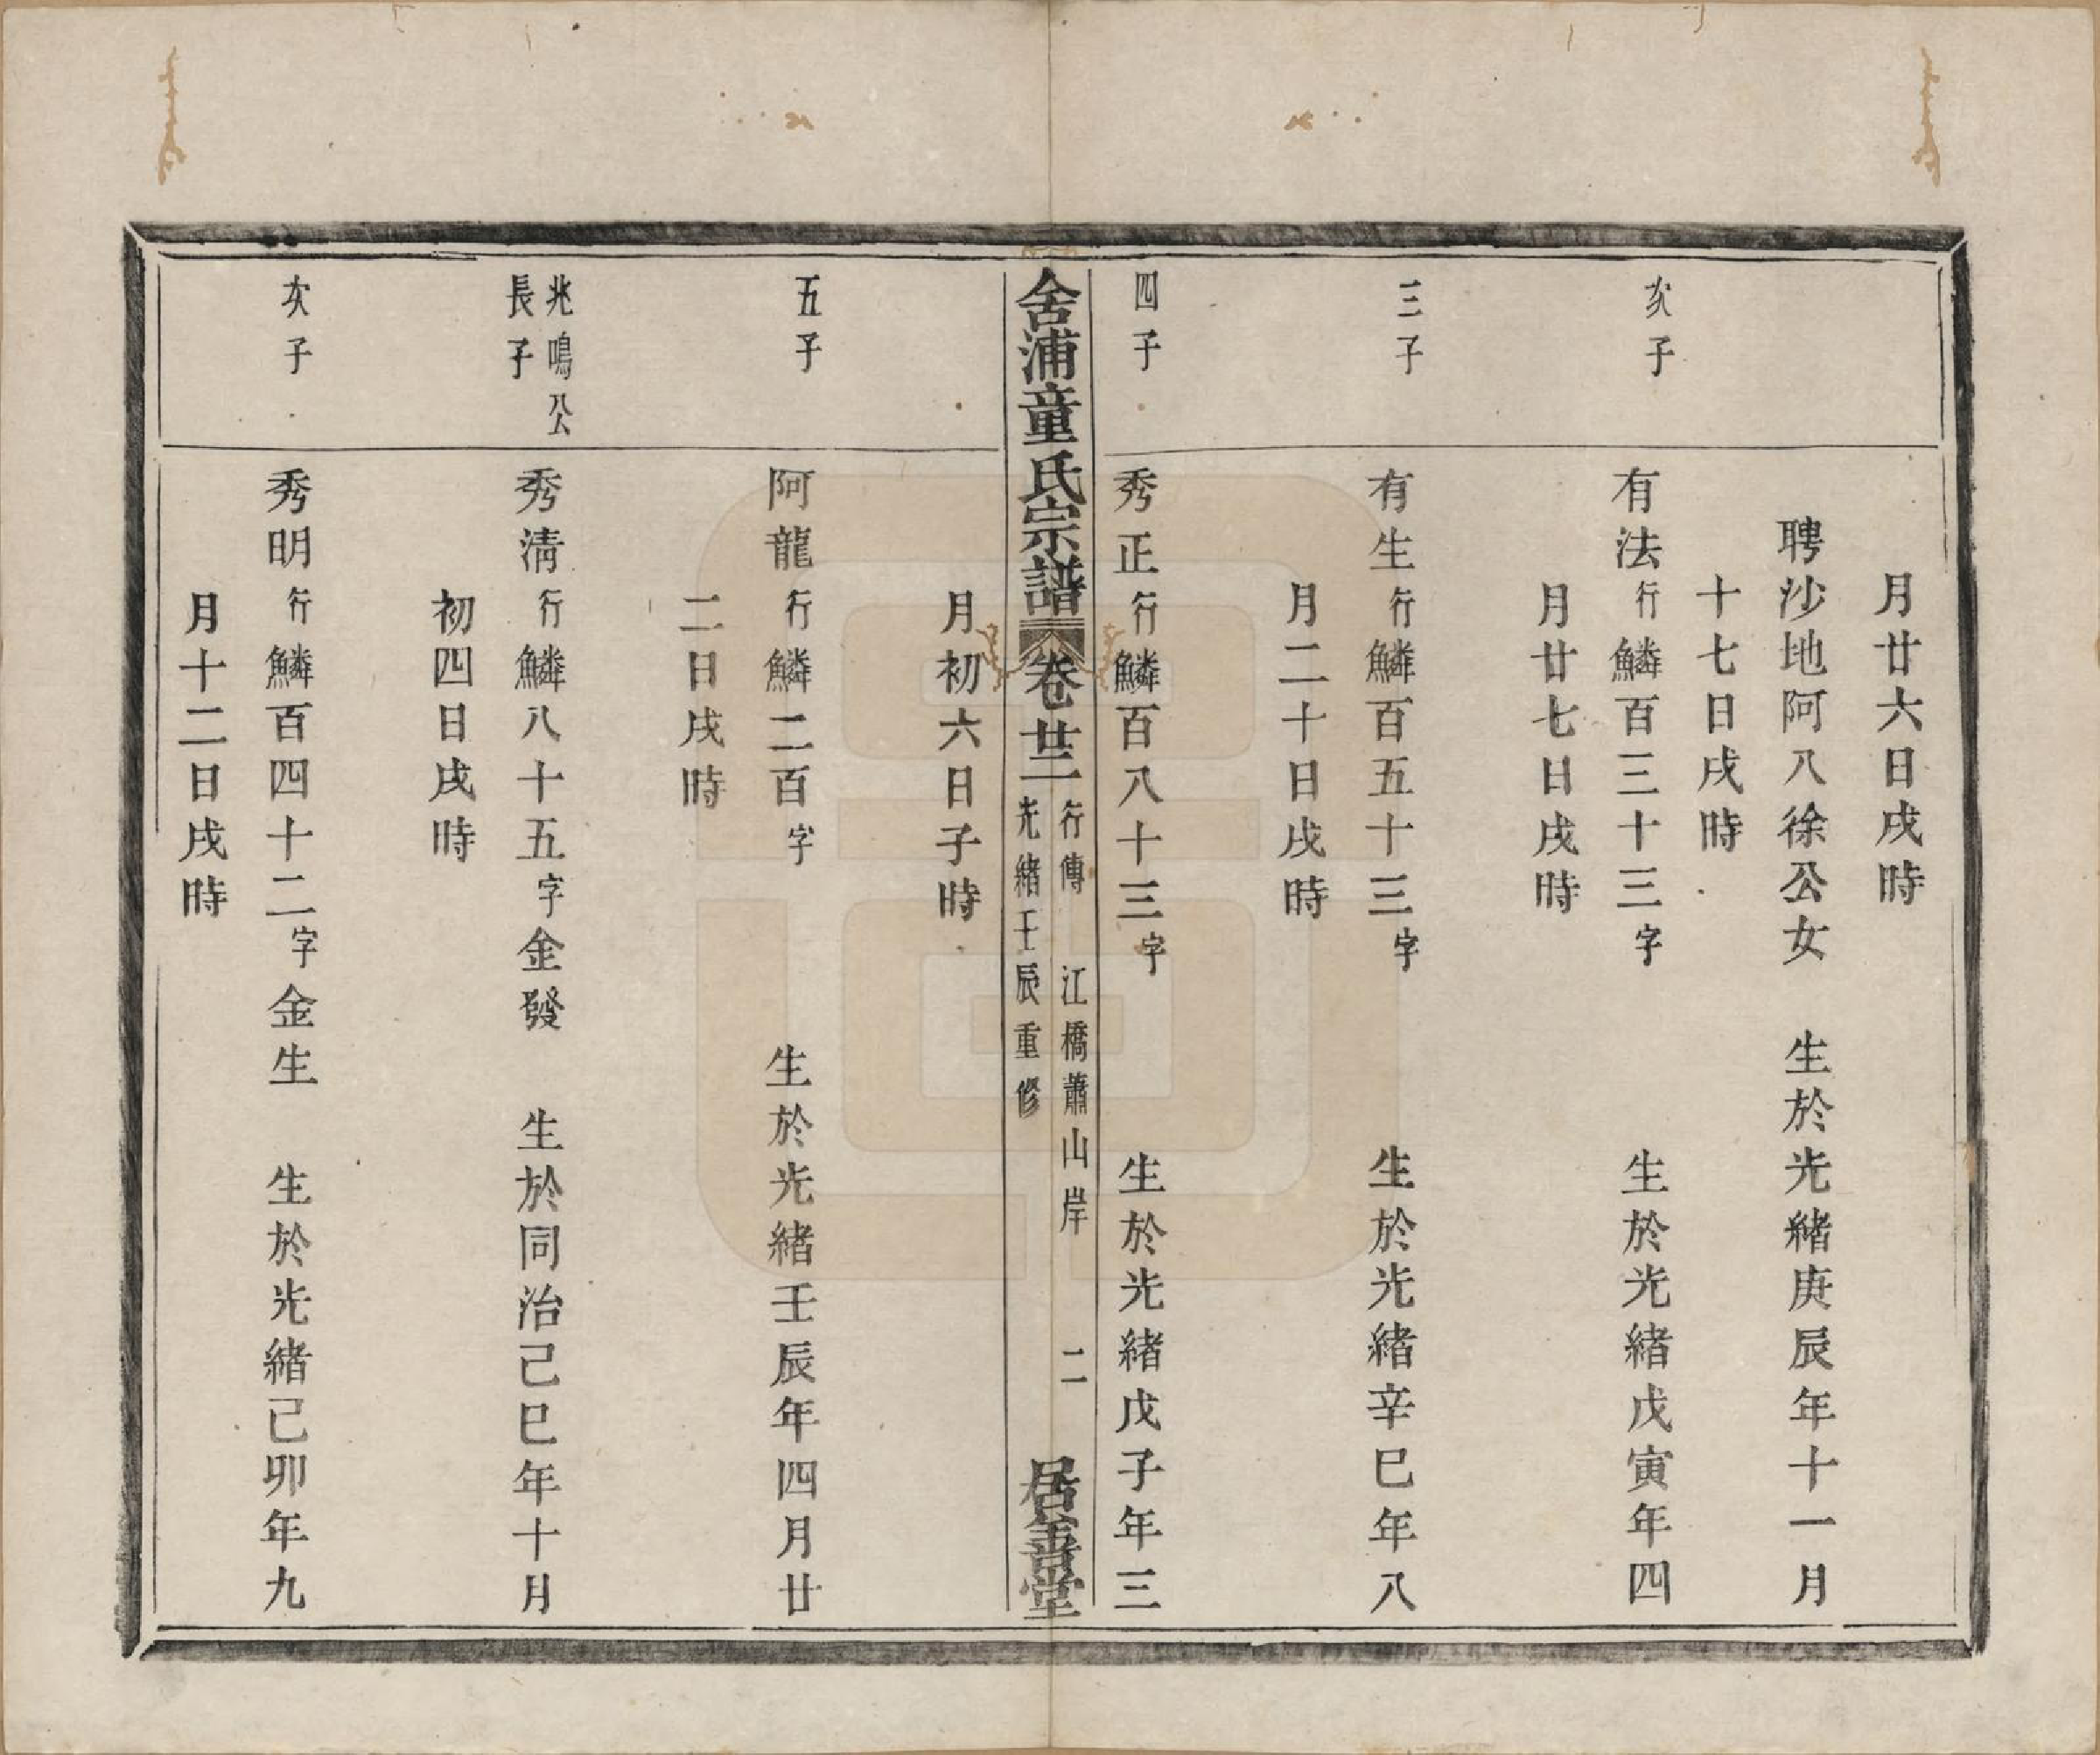 月廿六日戌時
聘沙地阿八徐公女 生於光緒庚辰年十一月
十七日戌時
次子
有法行鱗百三十三字 生於光緒戊寅年四
月廿七日戌時
三子
有生行鱗百五十三字 生於光緒辛巳年八
月二十日戌時
四子
秀正行鱗百八十三字 生於光緒戊子年三
舍浦童氏宗譜 卷廿二 行傳 江橋蕭山岸 二
光緒壬辰重修
居善堂
月初六日子時
五子
阿龍行鱗二百字 生於光緒壬辰年四月廿
二日戌時
兆鳴公
長子
秀淸行鱗八十五字金發 生於同治己巳年十月
初四日戌時
次子
秀明行鱗百四十二字金生 生於光緒己卯年九
月十二日戌時